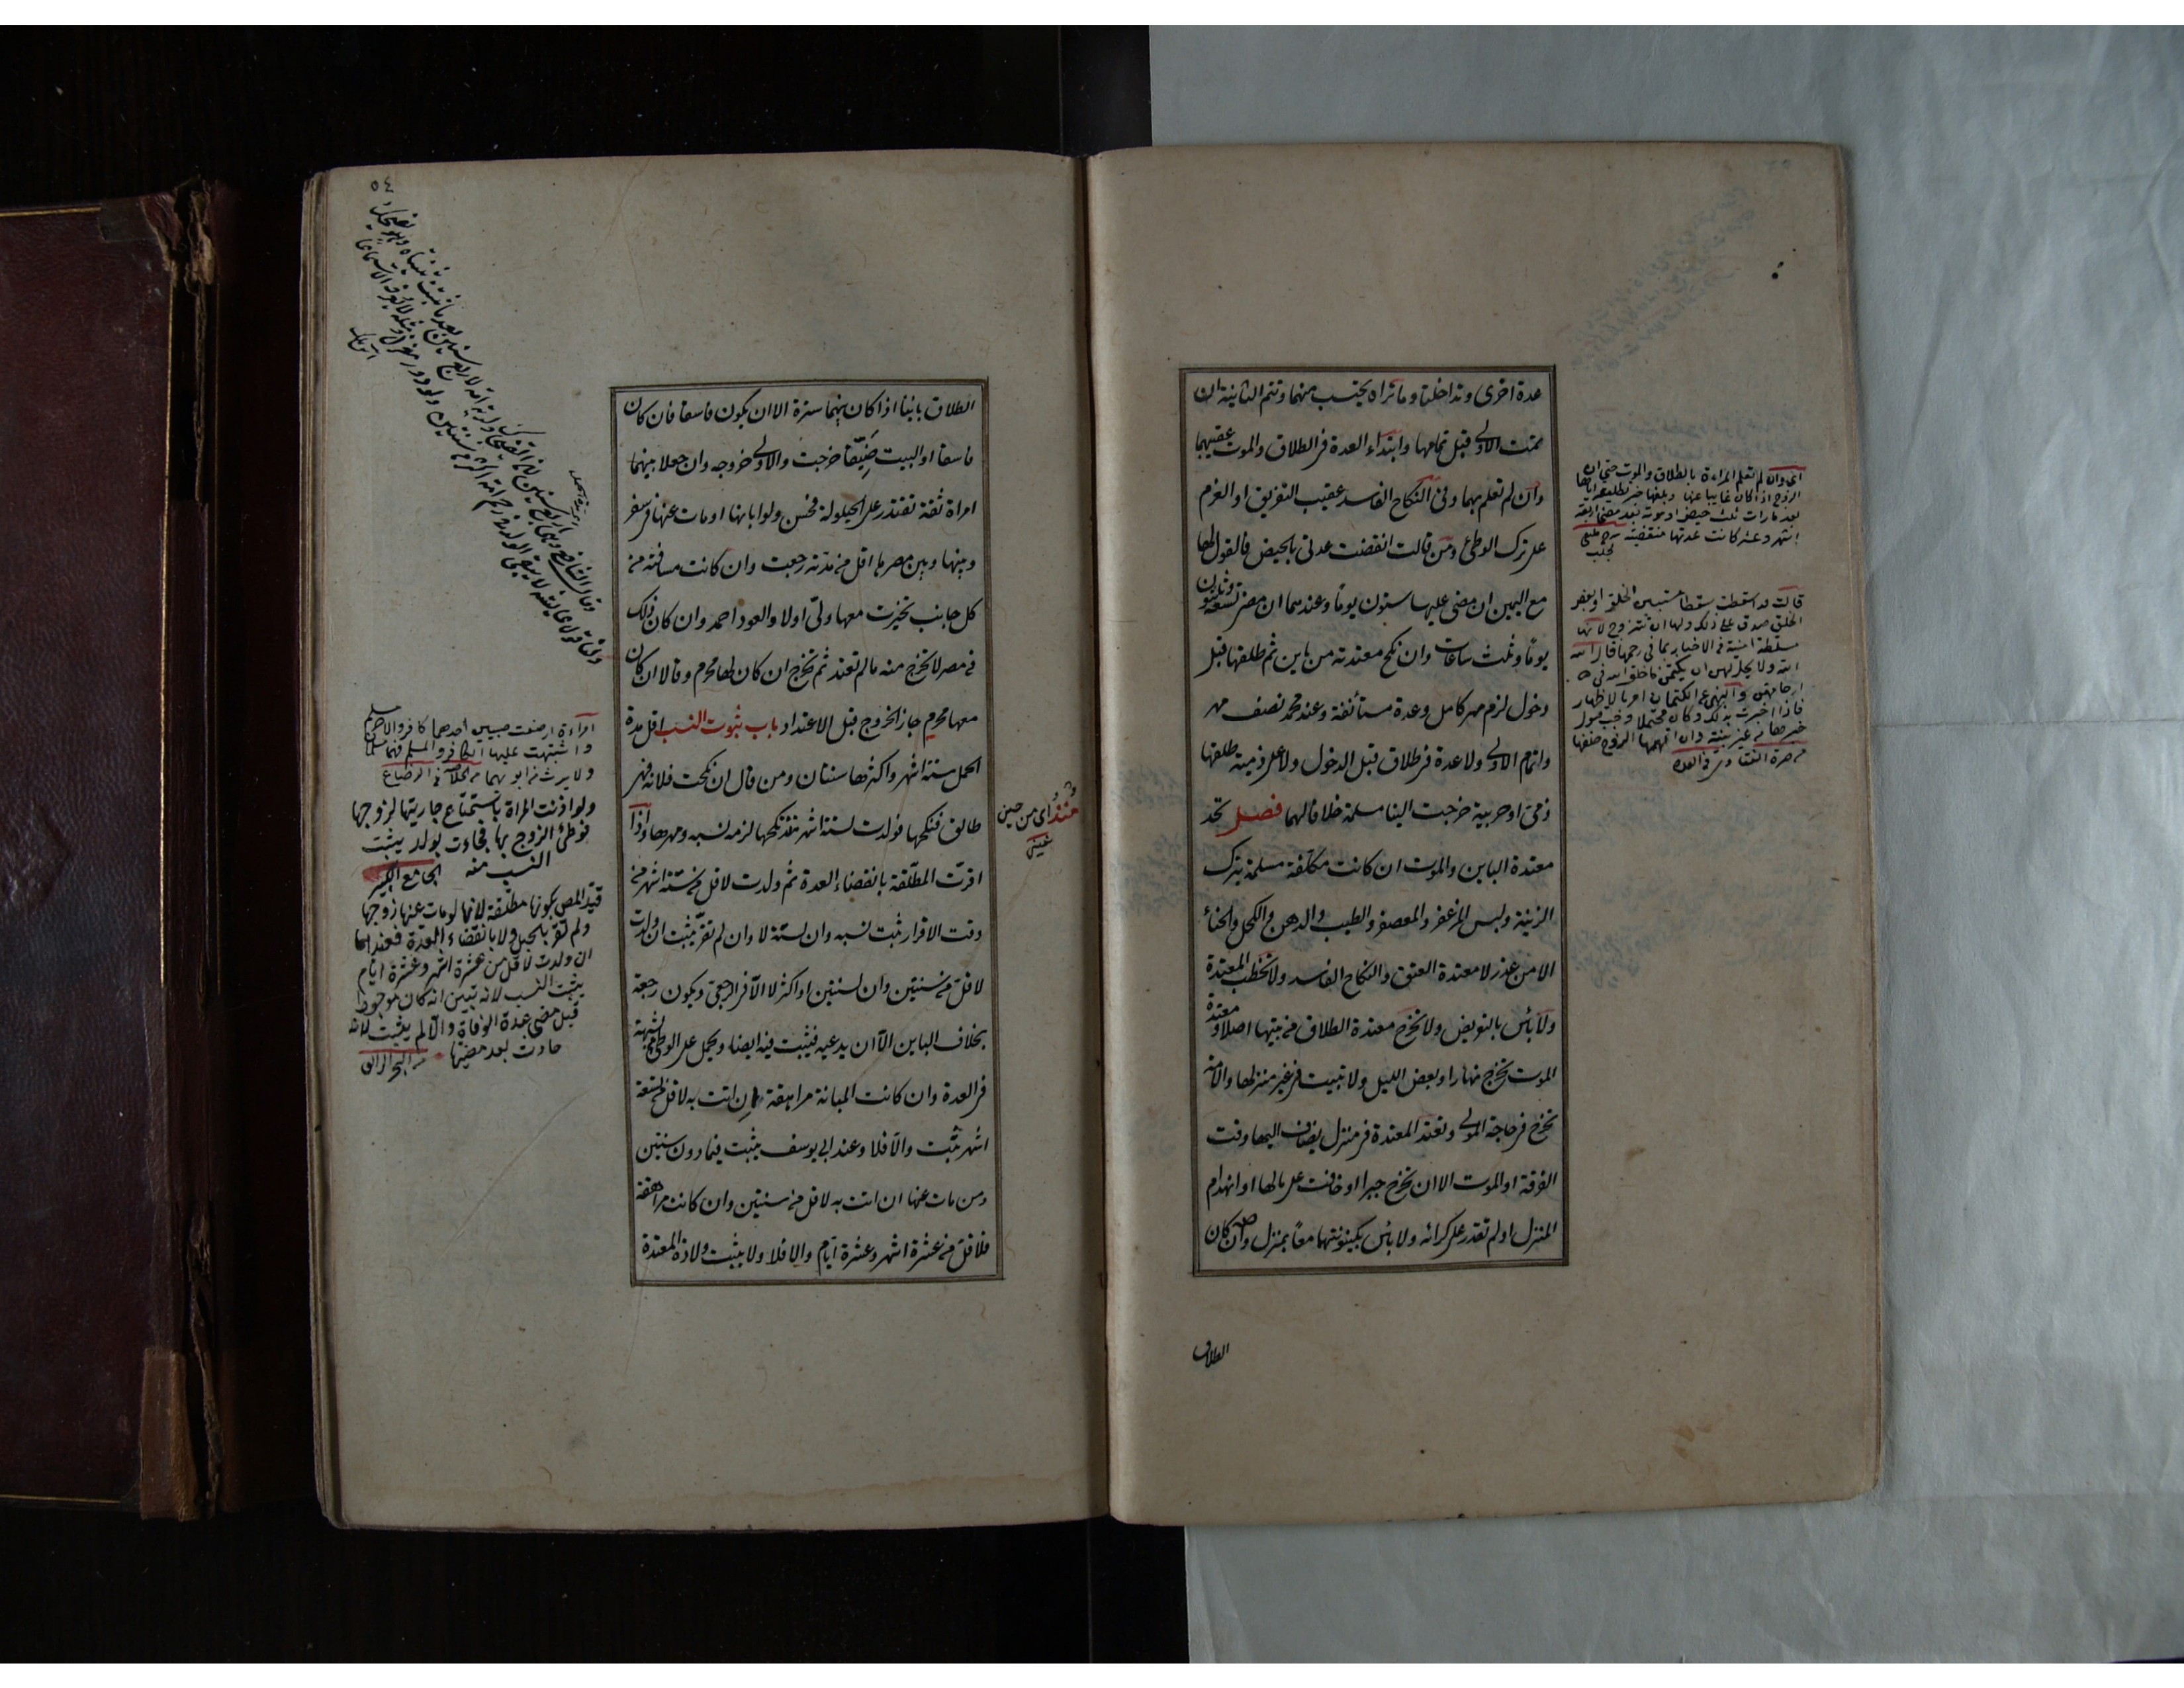 عدة اخرى وتداخلتا وما تراه يحتسب منهما وتتم الثانية ان
تمت الاولى قبل تمامها وابتداء العدة فى الطلاق والموت عقيبهما
وان لم تعلم بهما وفى النكاح الفاسد عقيب التفريق او العزم
على ترك الوطئ ومن قالت انقضت عدتى بالحيض فالقول لها
مع اليمين ان مضى عليها ستون يوما وعندهما ان مضى تسعة وثلثون
يوما وثلث ساعات وان نكح معتدته من باين ثم طلقها قبل
دخول لزم مهر كامل وعدة مستأنفة وعند محمد نصف مهر
واتمام الاولى ولا عدة فى طلاق قبل الدخول ولا على ذمية طلقها
ذمى او حربية خرجت الينا مسلمة خلافا لهما فصل تحد
معتدة الباين والموت ان كانت مكلفة مسلمة بترك
الزينة ولبس المزعفر والمعصفر والطيب والدهن والكحل والحناء
الا من عذر لا معتدة العتق والنكاح الفاسد ولا تخطب المعتدة
ولا بأس بالتعريض ولا تخرج معتدة الطلاق من بيتها اصلا ومعتدة
الموت تخرج نهارا وبعض الليل ولا تبيت فى غير منزلها والامة
تخرج فى حاجة المولى وتعتد المعتدة فى منزل يضاف اليها وقت
الفرقة او الموت الا ان تخرج جبرا او خافت على مالها او انهدام
المنزل او لم تقدر على كرائه ولا بأس بكينونتهما معا بمنزل وان كان
الطلاق
اى وان لم تعلم المراءة بالطلاق والموت حتى ان
الزوج اذا كان غايبا عنها وبلغها خبر تطليقه اياها
بعد ما رات ثلث حيض او موته بعد مضى اربعة
اشهر وعشر كانت عدتها منقضية
قالت قد اسقطت سقطا مستبين الخلق او بعض
الخلق صدق على ذلك ولها ان تتزوج لانها
مسلطة امينة فى الاخبار بما فى رحمها قال
الله ولا يحل لهن ان يكتمن ما خلق الله فى
ارحامهن والنهى عن الكتمان امر بالاظهار
فاذا اخبرت بذلك وكان محتملا وجب قبول
خبرها من غير بينة وان اتهمها الزوج حلفها
٥٤
الطلاق باينا اذا كان بينهما سترة الا ان يكون فاسقا فان كان
فاسقا او البيت ضيقا خرجت والاولى خروجه وان جعلا بينهما
امراة ثقة تقتدر على الحيلولة فحسن ولو ابانها او مات عنها فى سفر
وبينها وبين مصرها اقل من مدته رجعت وان كانت مسافته من
كل جانب تخيرت معها ولى اولا والعود احمد وان كان ذلك
فى مصر لا تخرج منه ما لم تعتد ثم تخرج ان كان لها محرم وقالا ان كان
معها محرم جاز الخروج قبل الاعتداد باب ثبوت النسب اقل مدة
الحمل ستة اشهر واكثرها سنتان ومن قال ان نكحت فلانة فهى
طالق فنكحها فولدت لستة اشهر منذ نكحها لزمه نسبه ومهرها واذا
اقرت المطلقة بانقضاء العدة ثم ولدت لاقل من ستة اشهر من
وقت الاقرار ثبت نسبه وان لستة لا وان لم تقر يثبت ان ولدت
لاقل من سنتين وان لسنتين او اكثر لا الا فى الرجعى ويكون رجعة
بخلاف الباين الا ان يدعيه فيثبت فيه ايضا ويحمل على الوطئ بشبهة
فى العدة وان كانت المبانة مراهقة ان اتت به لاقل من تسعة
اشهر ثبت والا فلا وعند ابى يوسف يثبت فيما دون سنتين
ومن مات عنها ان اتت به لاقل من سنتين وان كانت مراهقة
فلاقل من عشرة اشهر وعشرة ايام والا فلا ولا يثبت ولادة المعتدة
منذ اى من حين
عينى
امراءة ارضعت صبيين احدهما كافر والاخر مسلم
واشتبهت عليها الكافر والمسلم فهما مسلمان
ولا يرث من ابويهما من خلاصة فى الرضاع
ولو اذنت المراة باستمتاع جاريتها لزوجها
فوطئ الزوج بها فجاءت بولد يثبت
النسب منه الجامع الكبير
قيد المص بكونها مطلقة لانها لو مات عنها زوجها
ولم تقر بالحبل ولا بانقضاء العدة فعندنا
ان ولدت لاقل من عشرة اشهر وعشرة ايام
يثبت النسب لانه تبين انه كان موجودا
قبل مضى عدة الوفاة والا لم يثبت لانه
حادث بعد مضيها من البحر الرائق